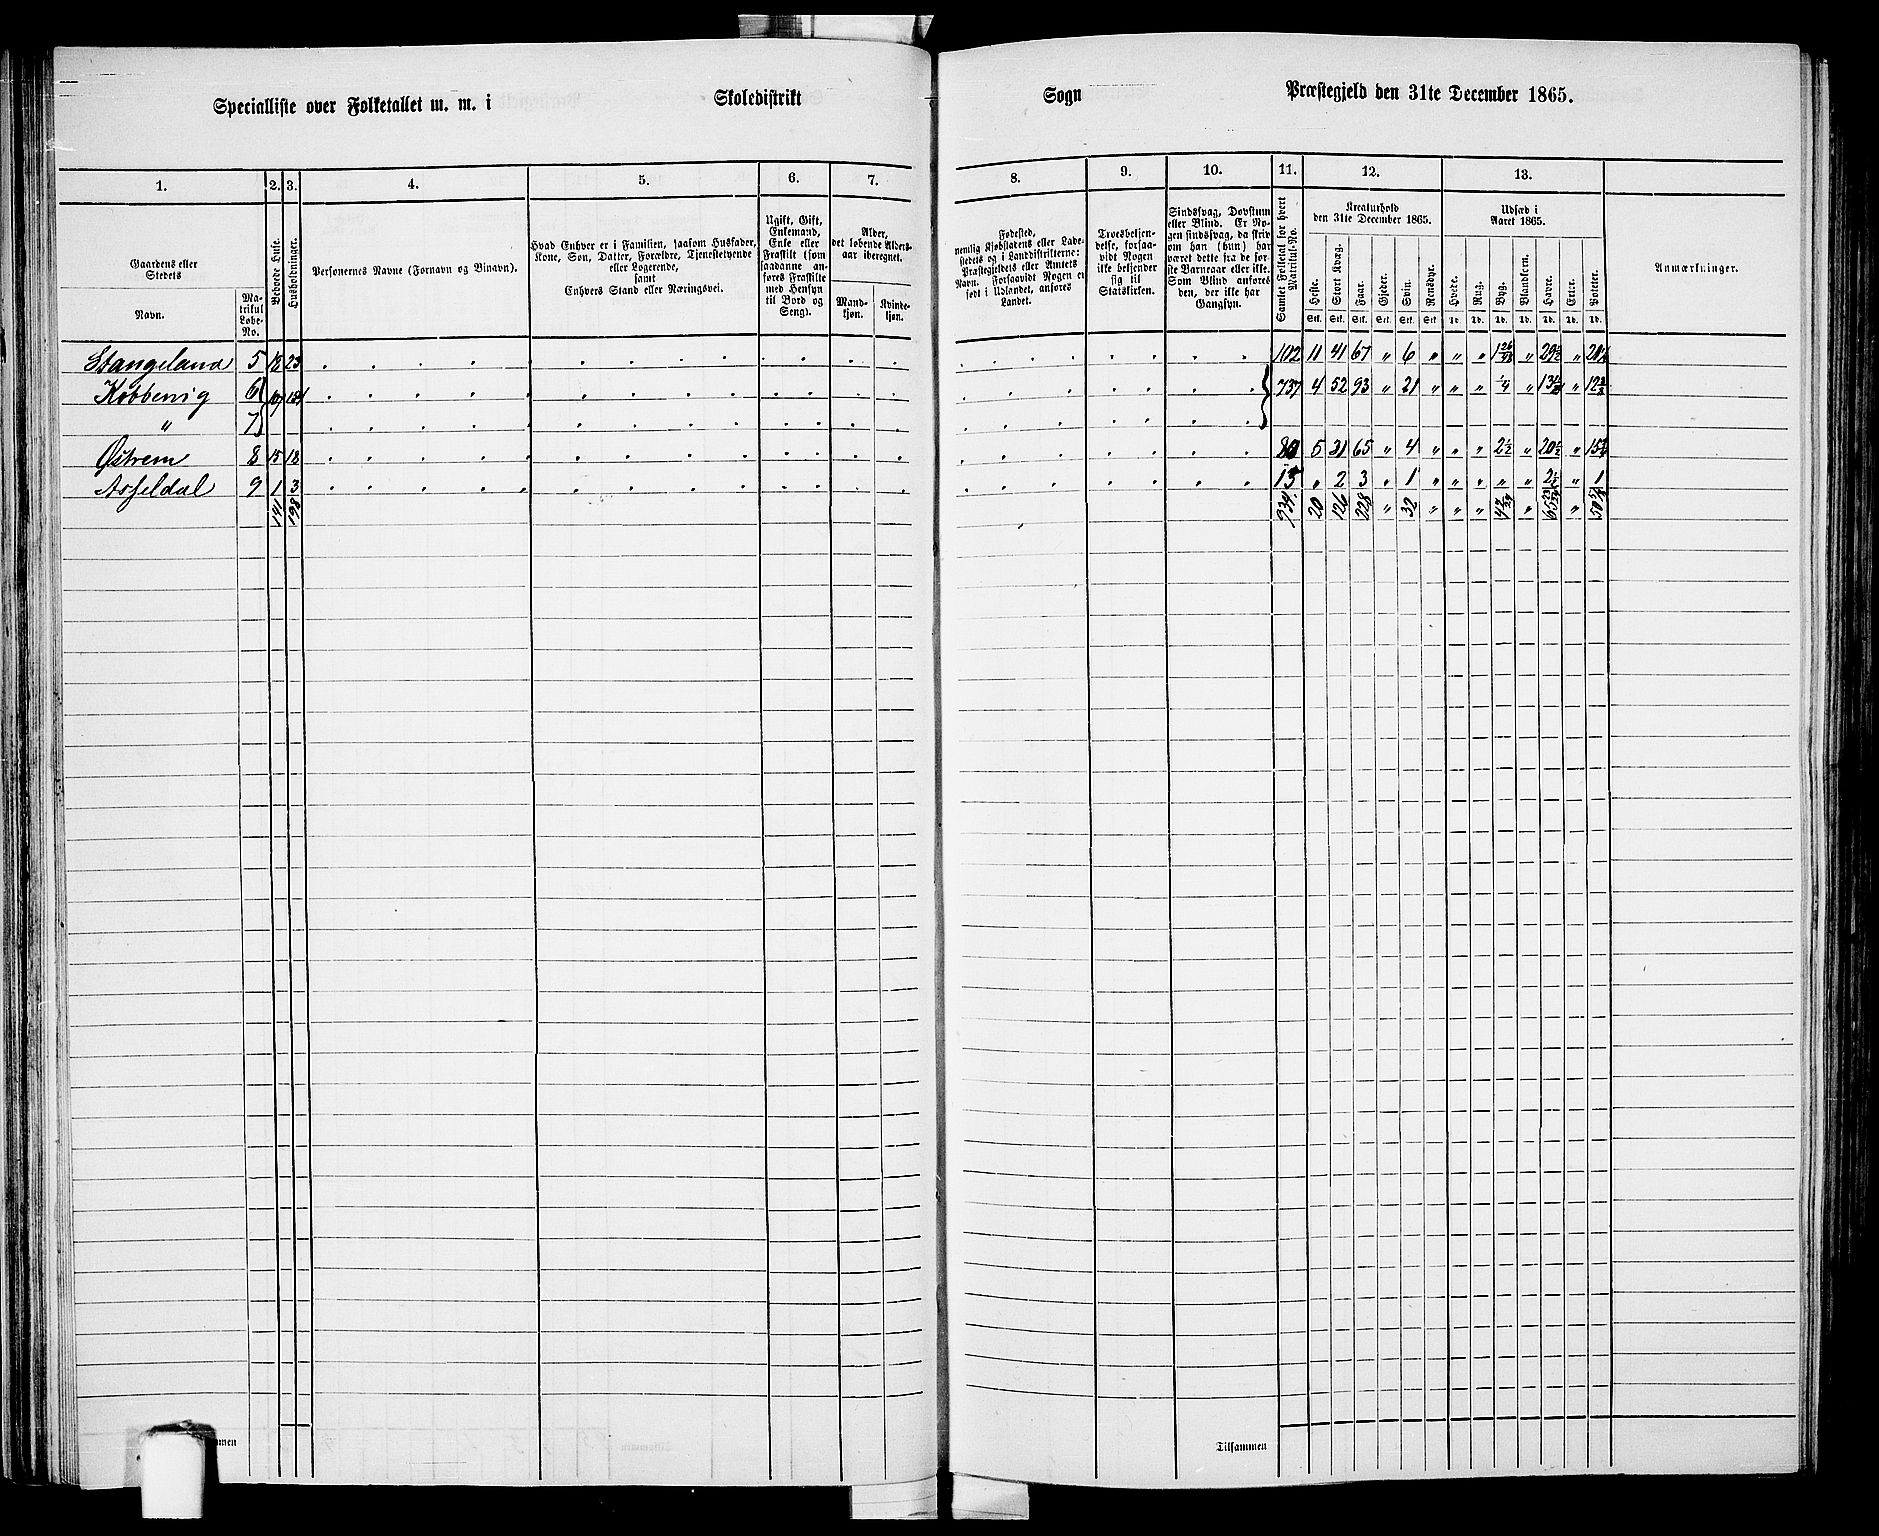 Specialliste over Folketallet m. m. i Skoledistrikt Sogn Præstegjeld den 31te December 1865.
1. 2. 3. 4. 5. 6. 7. 8. 9. 10. 11. 12. 13.
Gaardens eller Stedets
Navn.
Matrikul Løbe-No.
Beboede Huse.
Husholdninger.
Personernes Navne (Fornavn og Binavn).
Hvad Enhver er i Familien, saasom Husfader, Kone, Søn, Datter, Forældre, Tjenestetyende eller Logerende,
samt
Enhvers Stand eller Næringsvei.
Ugift, Gift, Enkemand, Enke eller Fraskilt (som saadanne anføres Fraskilte med Hensyn til Bord og Seng).
Alder, det løbende Aldersaar iberegnet.
Mandkjøn. Kvindekjøn.
Fødested, nemlig Kjøbstadens eller Ladestedets og i Landdistrikterne: Præstegjeldets eller Amtets Navn. Forsaavidt Nogen er født i Udlandet, anføres Landet.
Troesbekjendelse, forsaavidt Nogen ikke bekjender sig til Statskirken.
Sindssvag, Døvstum eller Blind. Er Nogen sindssvag, da skrives om han (hun) har været dette fra de første Barneaar eller ikke. Som Blind anføres den, der ikke har Gangsyn.
Samlet Folketal for hvert Matrikul-No.
Kreaturhold den 31te December 1865.
Heste. Stort Kvæg. Faar. Gjeder. Svin. Rensdyr.
Udsæd i Aaret 1865.
Hvede. Rug. Byg. Blandkorn. Havre. Erter. Poteter.
Stk. Stk. Stk. Stk. Stk. Stk. Td. Td. Td. Td. Td. Td. Td.
Anmærkninger.
Stangeland 5 18 23 102 11 41 67 " 6 " " " 1 " 29½ "
Kobbevig 6 737 4 52 93 " 21 " " " ¼ " " 12⅔
" 7
Østrem 8 15 18 80 5 31 65 " 4 " " " 2½ " 20½ "
Asseldal 9 1 3 15 " 2 3 " 1 " " " " " 2½ " 1
141 198 934 20 126 228 " 32 " " " " "
Tilsammen